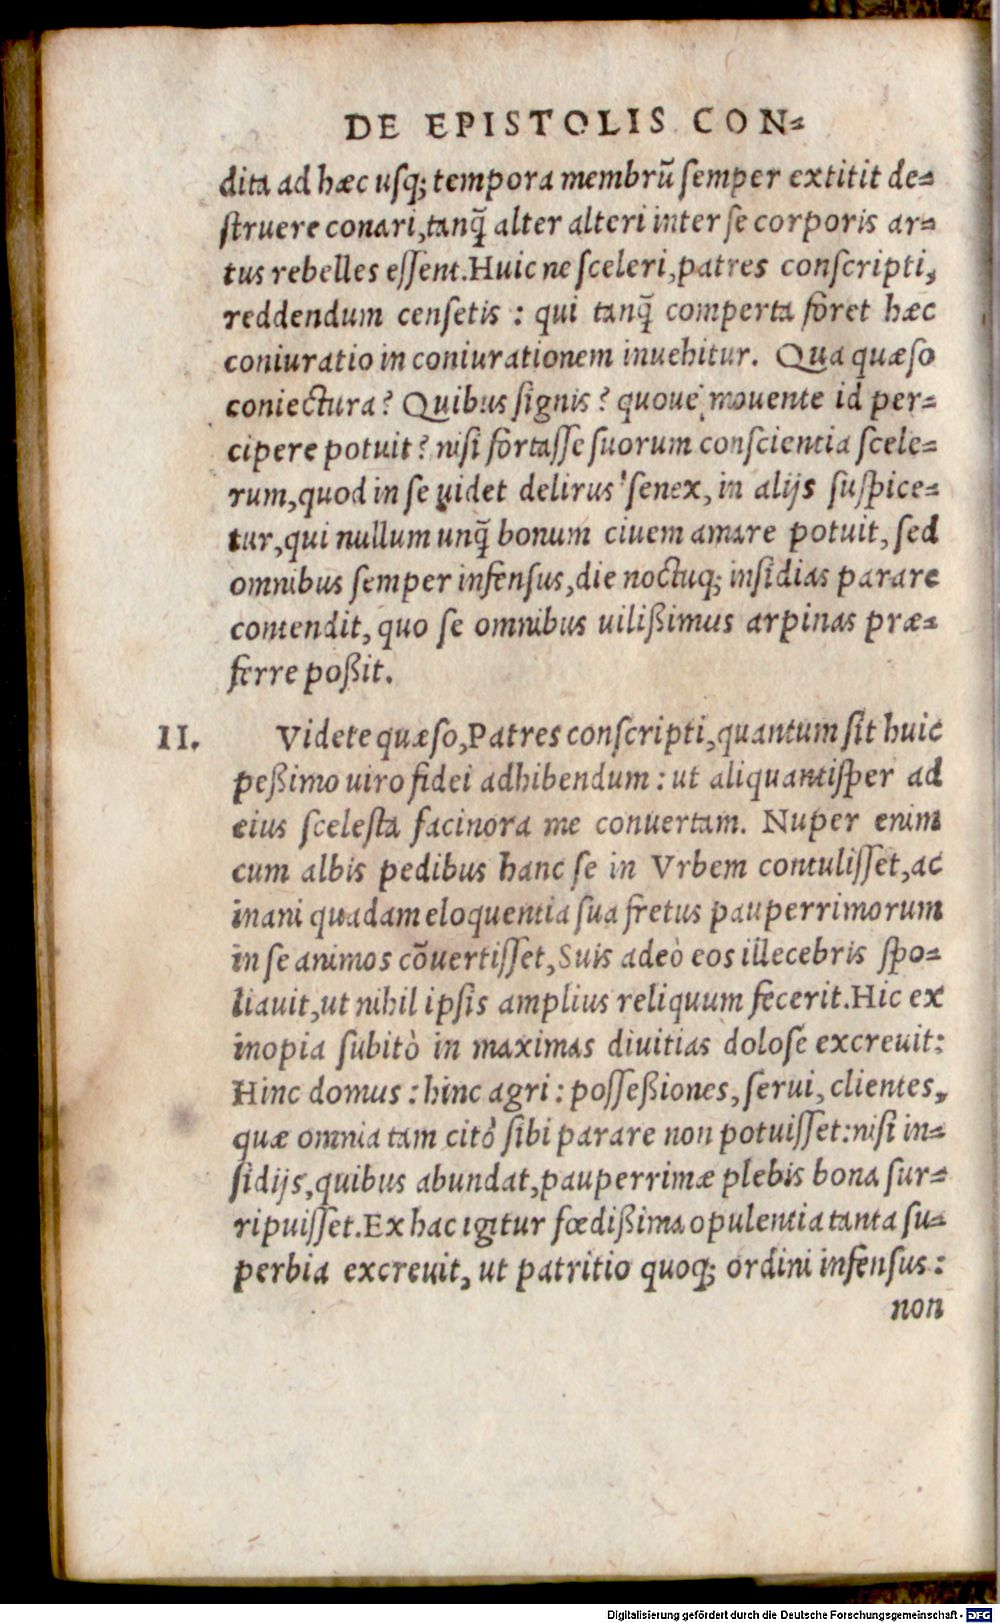 DE EPISTOLIS CON-
dita ad hæc usq; tempora membrũ semper extitit de-
struere conari, tanq̃ alter alteri inter se corporis ar-
tus rebelles essent. Huic ne sceleri, patres conscripti,
reddendum censetis : qui tanq̃ comperta foret hæc
coniuratio in coniurationem inuehitur. Qua quæso
coniectura? Quibus signis? quoue mouente id per-
cipere potuit? nisi fortasse suorum conscientia scele-
rum, quod in se uidet delirus senex, in alijs suspice-
tur, qui nullum unq̃ bonum ciuem amare potuit, sed
omnibus semper infensus, die noctuq; insidias parare
contendit, quo se omnibus uilißimus arpinas præ-
ferre poßit.
II. Videte quæso, Patres conscripti, quantum sit huic
peßimo uiro fidei adhibendum : ut aliquantisper ad
eius scelesta facinora me conuertam. Nuper enim
cum albis pedibus hanc se in Vrbem contulisset, ac
inani quadam eloquentia sua fretus pauperrimorum
in se animos cõuertisset, Suis adeò eos illecebris spo-
liauit, ut nihil ipsis amplius reliquum fecerit. Hic ex
inopia subitò in maximas diuitias dolosè excreuit:
Hinc domus : hinc agri : posseßiones, serui, clientes,
quæ omnia tam citò sibi parare non potuisset: nisi in-
sidijs, quibus abundat, pauperrimæ plebis bona sur-
ripuisset. Ex hac igitur fœdißima opulentia tanta su-
perbia excreuit, ut patritio quoq; ordini infensus:
non
Digitalisierung gefördert durch die Deutsche Forschungsgemeinschaft - DFG